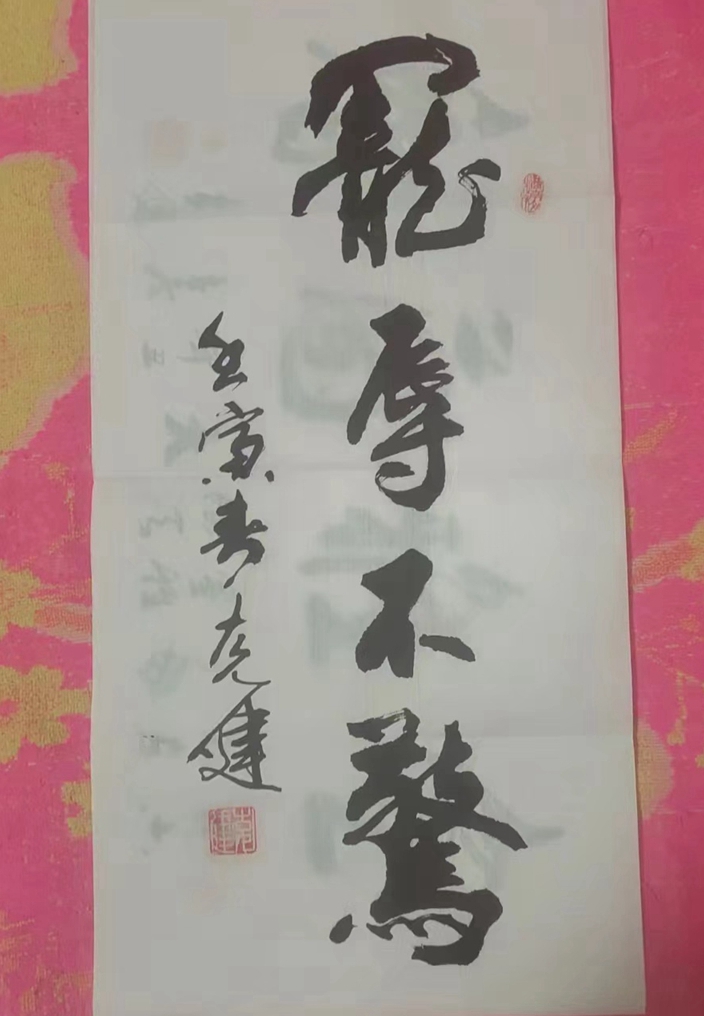 寵辱不驚
壬寅春克健